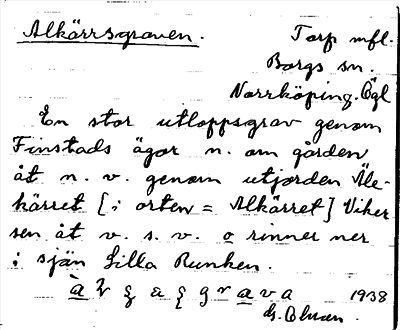 Alkärrsgraven.
Torp mfl.
Borgs sn.
Norrköping. Ögl
En stor utloppsgrav genom
Finstads ägor n. om gården
åt n. v. genom utjorden Åle-
kärret [i orten = Alkärret] Viker
sen åt v. s. v. o rinner ner
i sjön Lilla Runken.
1938
G.